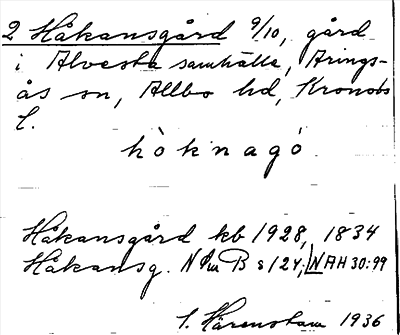 2 Håkansgård 9/10, gård
i Alvesta samhälle, Arings-
ås sn, Allbo hd, Kronobs
l.
hòknagó
Håkansgård kb 1928, 1834
Håkansg. N Sm B s 124; NAH 30:99
S. Härenstam 1936